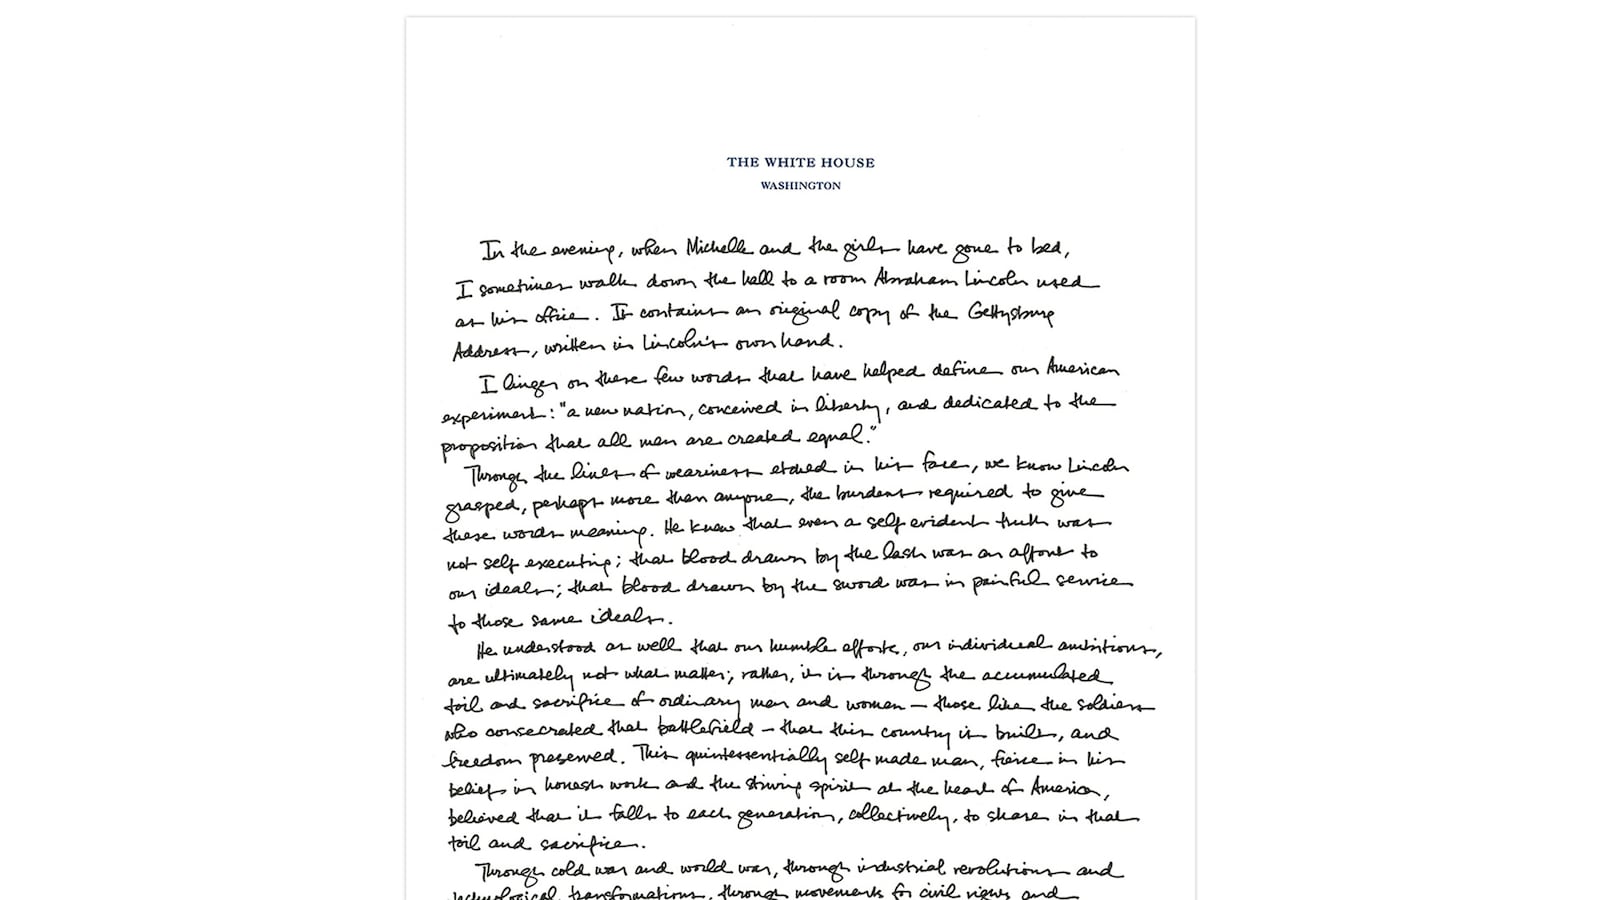 THE WHITE HOUSE
WASHINGTON
In the evening, when Michelle and the girls have gone to bed,
I sometimes walk down the hall to a room Abraham Lincoln used
as his office. It contains an original copy of the Gettysburg
Address, written in Lincoln's own hand.
I linger on these few words that have helped define our American
experiment: "a new nation, conceived in liberty, and dedicated to the
proposition that all men are created equal."
Through the lines of weariness etched in his face, we know Lincoln
grasped, perhaps more than anyone, the burdens required to give
these words meaning. He knew that even a self evident truth was
not self executing; that blood drawn by the lash was an affront to
our ideals; that blood drawn by the sword was in painful service
to those same ideals.
He understood as well that our humble efforts, our individual ambitions,
are ultimately not what matter; rather, it is through the accumulated
toil and sacrifice of ordinary men and women – those like the soldiers
who consecrated that battlefield – that this country is built, and
freedom preserved. This quintessentially self made man, fierce in his
belief in honest work and the striving spirit at the heart of America,
believed that it falls to each generation, collectively, to share in that
toil and sacrifice.
Through cold war and world war, through industrial revolutions and
technological transformations, through movements for civil rights and